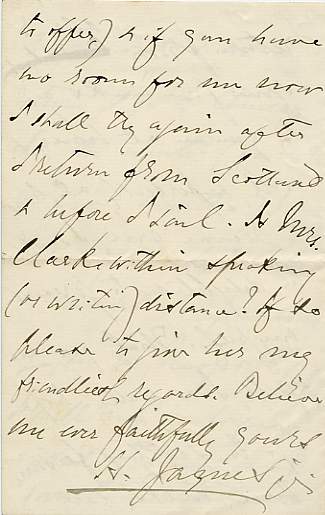 to offer,) & if you have
no room for me now
I shall try again after
I return from Scotland
& before I sail. Is Mrs.
Clark within speaking
(or writing) distance? If so
please to give her my
friendliest regards. Believe
me ever faithfully yours
H. James jr